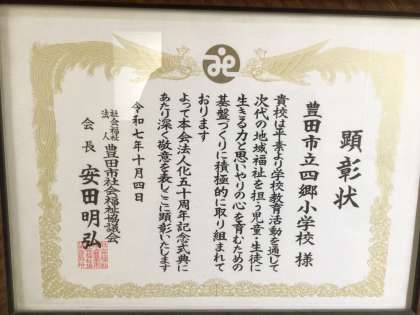 顕彰状
豊田市立四郷小学校 様
貴校は平素より学校教育活動を通して
次代の地域福祉を担う児童・生徒に
生きる力と思いやりの心を育むための
基盤づくりに積極的に取り組まれて
おります
よって本会法人化五十周年記念式典に
あたり深く敬意を表しここに顕彰いたします
令和七年十月四日
社会福祉法人 豊田市社会福祉協議会
会長 安田明弘